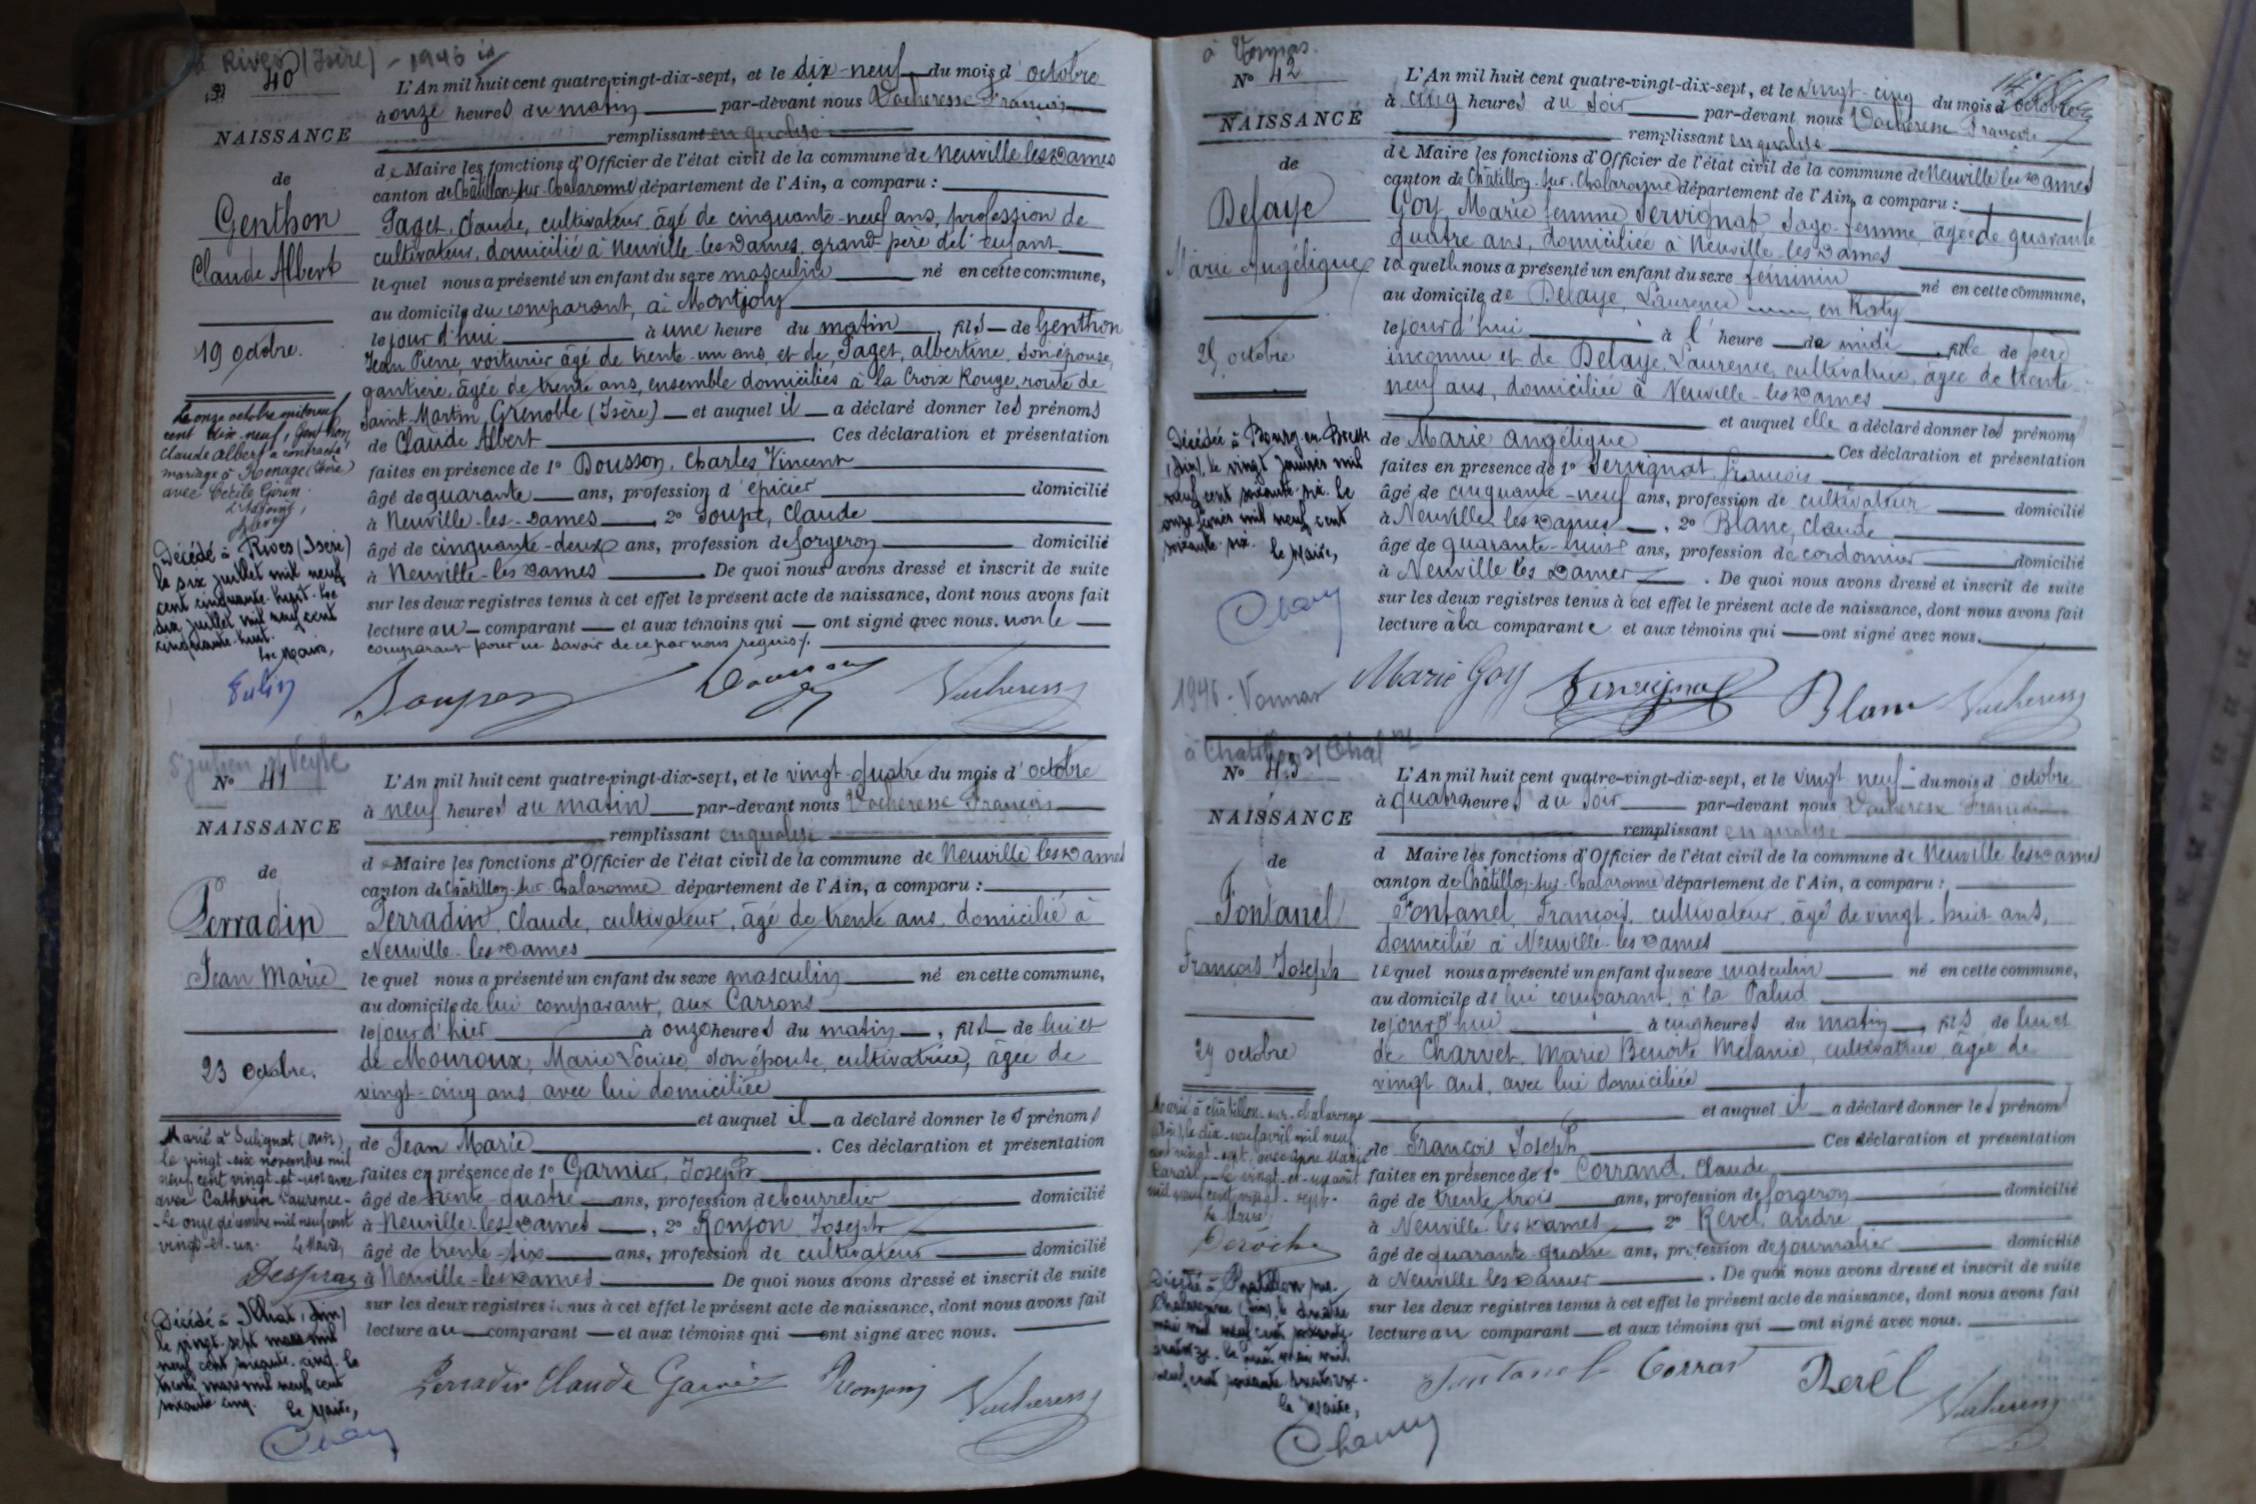 à Rives (Isère) - 1946
N° 40
NAISSANCE
de
Genthon
Claude Albert
19 octobre.
Le onze octobre mil neuf
cent dix-neuf, Genthon
Claude Albert a contracté
mariage à Renage (Isère)
avec Cécile Girin.
L'Adjoint,
Décédé à Rives (Isère)
le six juillet mil neuf
cent cinquante-huit. Le
six juillet mil neuf cent
cinquante-huit.
Le Maire,
L'An mil huit cent quatre-vingt-dix-sept, et le dix-neuf du mois d'octobre
à onze heures du matin par-devant nous Vacheresse François
remplissant en qualité
de Maire les fonctions d'Officier de l'état civil de la commune de Neuville les Dames
canton de Châtillon-sur-Chalaronne département de l'Ain, a comparu :
Paget, Claude, cultivateur, âgé de cinquante-neuf ans, profession de
cultivateur, domicilié à Neuville-les-Dames, grand-père de l'enfant
lequel nous a présenté un enfant du sexe masculin né en cette commune,
au domicile du comparant, à Montjoly
le jour d'hui à une heure du matin, fils de Genthon
Jean Pierre, voiturier âgé de trente-un ans, et de Paget, albertine, son épouse,
gantière, âgée de trente ans, ensemble domiciliés à la Croix Rouge, route de
Saint-Martin, Grenoble (Isère) et auquel il a déclaré donner les prénoms
de Claude Albert. Ces déclaration et présentation
faites en présence de 1° Dousson, Charles Vincent
âgé de quarante ans, profession d'épicier domicilié
à Neuville-les-Dames, 2° Soupe, Claude
âgé de cinquante-deux ans, profession de forgeron domicilié
à Neuville-les-Dames. De quoi nous avons dressé et inscrit de suite
sur les deux registres tenus à cet effet le présent acte de naissance, dont nous avons fait
lecture au comparant et aux témoins qui ont signé avec nous. non le
comparant pour ne savoir de ce par nous requis.
Vacheresse
St Julien s/ Veyle
N° 41
NAISSANCE
de
Perradin
Jean Marie
23 octobre.
Marié à Sulignat (Ain)
le vingt-six novembre mil
neuf cent vingt-et-un avec
avec Catherin Laurence -
Le onze décembre mil neuf cent
vingt-et-un. Le Maire,
Despraz
Décédé à Illiat (Ain)
le vingt-sept mars mil
neuf cent soixante-cinq. Le
trente mars mil neuf cent
soixante cinq. Le Maire,
Chany
L'An mil huit cent quatre-vingt-dix-sept, et le vingt-quatre du mois d'octobre
à neuf heures du matin par-devant nous Vacheresse François
remplissant en qualité
d Maire les fonctions d'Officier de l'état civil de la commune de Neuville les Dames
canton de Châtillon-sur-Chalaronne département de l'Ain, a comparu :
Perradin, Claude, cultivateur, âgé de trente ans, domicilié à
Neuville-les-Dames
lequel nous a présenté un enfant du sexe masculin né en cette commune,
au domicile de lui comparant, aux Carrons
le jour d'hier à onze heures du matin, fils de lui et
de Mouroux, Marie Louise, son épouse, cultivatrice, âgée de
vingt-cinq ans, avec lui domiciliée
et auquel il a déclaré donner les prénoms
de Jean Marie. Ces déclaration et présentation
faites en présence de 1° Garnier, Joseph
âgé de trente-quatre ans, profession de bourrelier domicilié
à Neuville-les-Dames, 2° Ronjon Joseph
âgé de trente-six ans, profession de cultivateur domicilié
à Neuville-les-Dames. De quoi nous avons dressé et inscrit de suite
sur les deux registres tenus à cet effet le présent acte de naissance, dont nous avons fait
lecture au comparant et aux témoins qui ont signé avec nous.
Perradin Claude Garnier Ronjon Vacheresse
à Vonnas.
N° 42
NAISSANCE
de
Delaye
Marie Angélique
25 octobre
Décédée à Bourg-en-Bresse
(Ain), le vingt janvier mil
neuf cent soixante-six. Le
onze février mil neuf cent
soixante-six. Le Maire,
Chany
1946 - Vonnas
L'An mil huit cent quatre-vingt-dix-sept, et le vingt-cinq du mois d'octobre
à cinq heures du soir par-devant nous Vacheresse François
remplissant en qualité
de Maire les fonctions d'Officier de l'état civil de la commune de Neuville les Dames
canton de Châtillon-sur-Chalaronne département de l'Ain, a comparu :
Goy, Marie femme Servignat, sage-femme, âgée de quarante
quatre ans, domiciliée à Neuville les Dames
laquelle nous a présenté un enfant du sexe féminin né en cette commune,
au domicile de Delaye, Laurence, en Roty
le jour d'hui à l'heure de midi, fille de père
inconnu et de Delaye, Laurence, cultivatrice, âgée de trente-
neuf ans, domiciliée à Neuville-les-Dames
et auquel elle a déclaré donner les prénoms
de Marie angélique. Ces déclaration et présentation
faites en présence de 1° Servignat françois
âgé de cinquante-neuf ans, profession de cultivateur domicilié
à Neuville les Dames, 2° Blanc, Claude
âgé de quarante-huit ans, profession de cordonnier domicilié
à Neuville les Dames. De quoi nous avons dressé et inscrit de suite
sur les deux registres tenus à cet effet le présent acte de naissance, dont nous avons fait
lecture à la comparante et aux témoins qui ont signé avec nous.
Marie Goy Servignat Blanc Vacheresse
à Chatillon s/ Chal ne
N° 43
NAISSANCE
de
Fontanel
François Joseph
29 octobre
Marié à Châtillon-sur-Chalaronne
(Ain) le dix-neuf avril mil neuf
cent vingt-sept, avec Marie
le vingt-et-un août
mil neuf cent vingt-sept.
Le Maire
Deroche
Décédé à Chatillon sur
Chalaronne (Ain), le
mai mil neuf cent soixante
quatorze. Le mai mil
neuf cent soixante quatorze.
Le Maire,
Chany
L'An mil huit cent quatre-vingt-dix-sept, et le vingt neuf du mois d'octobre
à quatre heures du soir par-devant nous Vacheresse François
remplissant en qualité
d Maire les fonctions d'Officier de l'état civil de la commune de Neuville les Dames
canton de Châtillon-sur-Chalaronne département de l'Ain, a comparu :
Fontanel, François, cultivateur, âgé de vingt-huit ans,
domicilié à Neuville-les-Dames
lequel nous a présenté un enfant du sexe masculin né en cette commune,
au domicile de lui comparant, à la Palud
le jour d'hui à cinq heures du matin, fils de lui et
de Charvet, Marie Benoîte Mélanie, cultivatrice, âgée de
vingt ans, avec lui domiciliée
et auquel il a déclaré donner les prénoms
de François Joseph. Ces déclaration et présentation
faites en présence de 1° Corrand, Claude
âgé de trente trois ans, profession de forgeron domicilié
à Neuville les Dames, 2° Revel, andré
âgé de quarante-quatre ans, profession de journalier domicilié
à Neuville les Dames. De quoi nous avons dressé et inscrit de suite
sur les deux registres tenus à cet effet le présent acte de naissance, dont nous avons fait
lecture au comparant et aux témoins qui ont signé avec nous.
Fontanel Corrand Revel Vacheresse